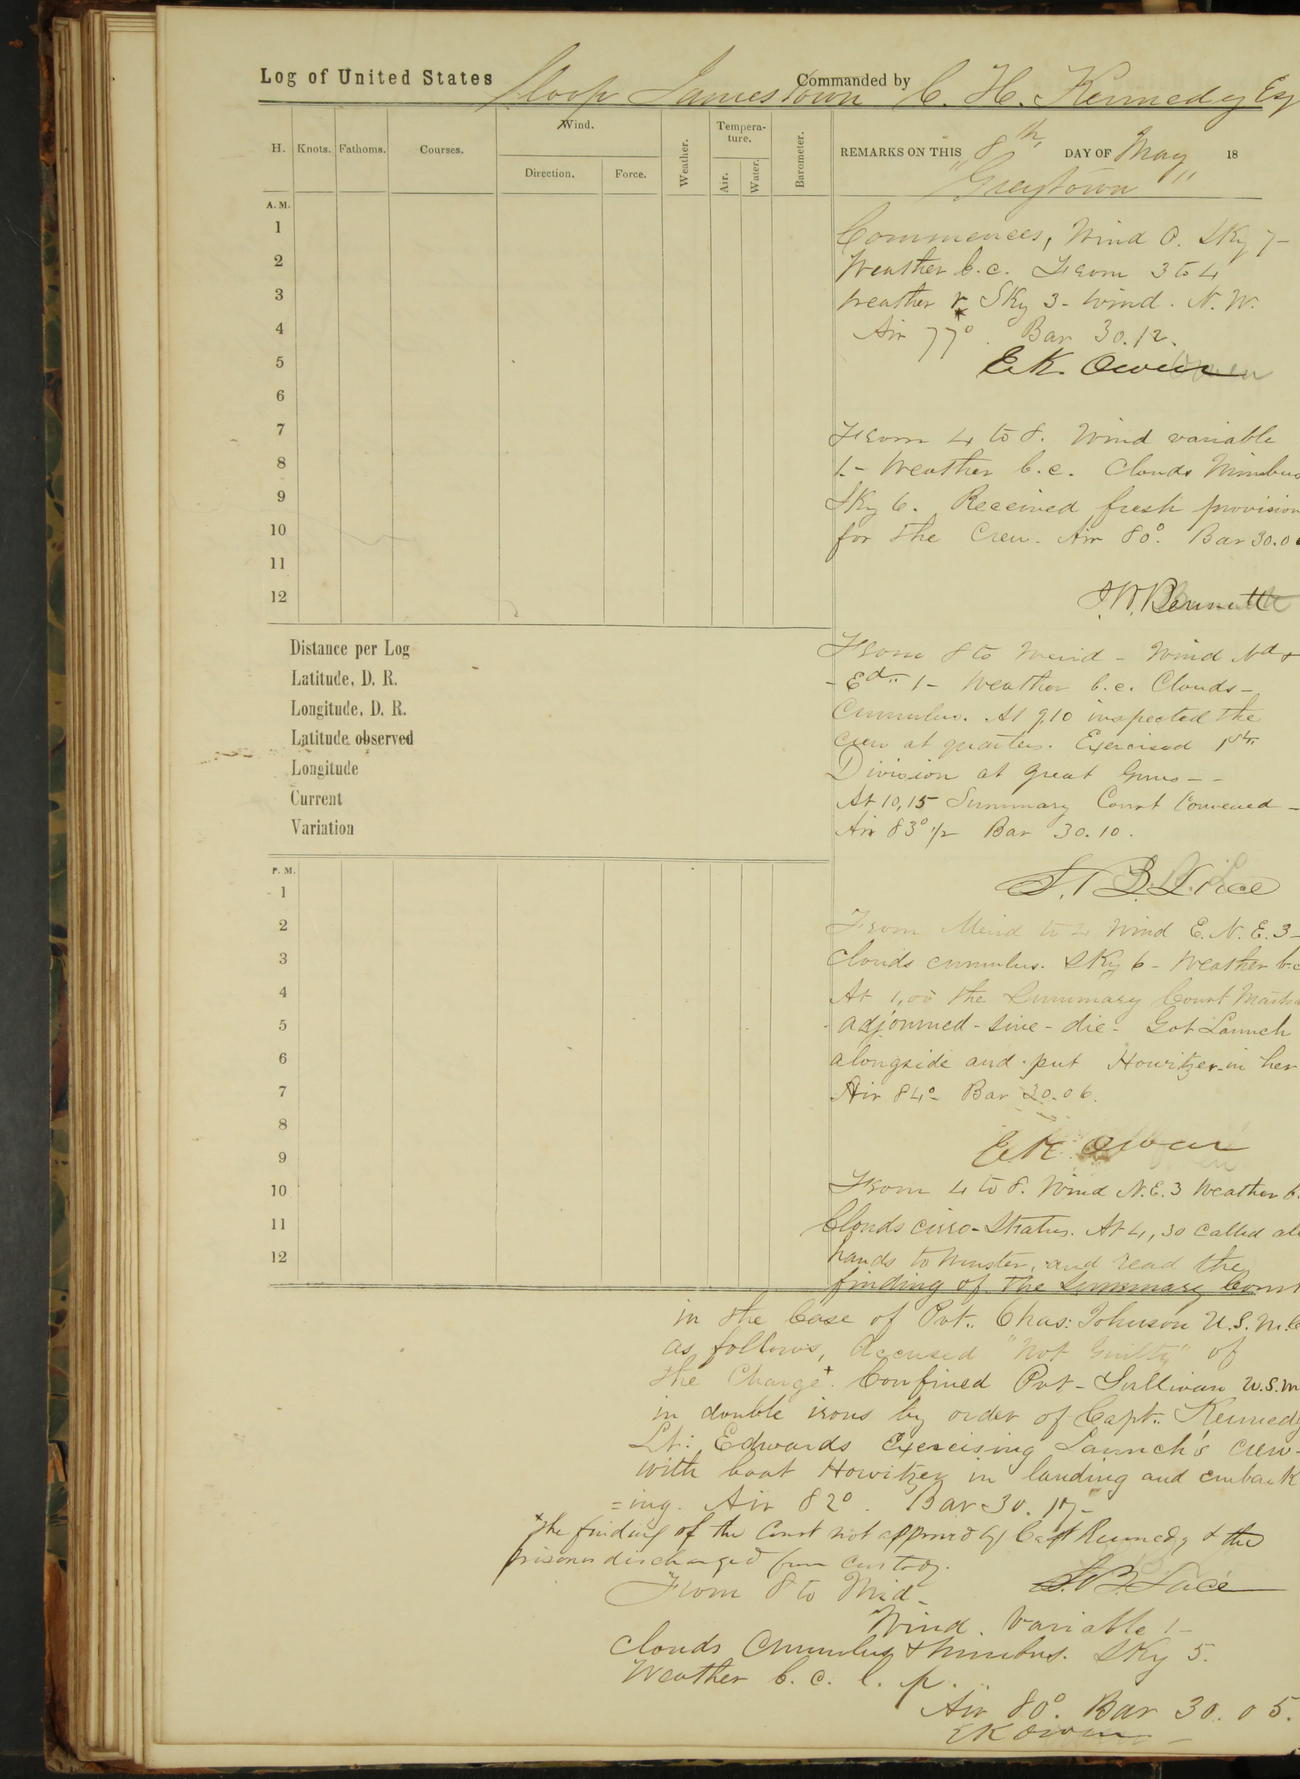 Log of United States Sloop Jamestown Commanded by C. H. Kennedy Esq
H. Knots. Fathoms. Courses. Wind. Direction. Force. Weather. Tempera-ture. Air. Water. Barometer.
REMARKS ON THIS 8th, DAY OF May 18
"Greytown"
A. M.
1
2
3
4
5
6
7
8
9
10
11
12
Commences, Wind 0. Sky 7-
Weather b.c. From 3 to 4
weather r Sky 3- Wind. N. W.
Air 77° Bar 30.12.
E.K. Owen
From 4 to 8. Wind variable
1.- Weather b.c. Clouds Nimbus
Sky 6. Received fresh provision
for the Crew. Air 80°. Bar 30.0
Bennett
From 8 to Merid - Wind Nd &
- Ed.. 1- Weather b.c. Clouds-
Cumulus. At 9.10 inspected the
crew at quarters. Exercised 1st
Division at Great Guns - -
At 10,15 Summary Court Convened -
Air 83° 1/2 Bar 30.10.
Distance per Log
Latitude, D. R.
Longitude, D. R.
Latitude observed
Longitude
Current
Variation
P. M.
1
2
3
4
5
6
7
8
9
10
11
12
From Merid to 4 Wind E. N. E. 3-
Clouds cumulus. Sky 6 - Weather b.c
At 1,00 the Summary Court Martia
adjourned - sine - die - Got Launch
alongside and put Howitzer in her
Air 84° Bar 30.06.
E.K. Owen
From 4 to 8. Wind N.E. 3 Weather b.
Clouds cirro-Stratus. At 4,30 called all
hands to muster, and read the
finding of the Summary Court
in the Case of Pvt. Chas: Johnson U.S.M.C
as follows, Accused "Not Guilty" of
the Charge+. Confined Pvt - Sullivan U.S.M
in double irons by order of Capt. Kennedy
Lt: Edwards Exercising Launch's crew-
with boat Howitzer in landing and embark
=ing. Air 82°. Bar 30.17-
+the finding of the Court not approved by Capt Kennedy & the
prisoner discharged from custody.
From 8 to Mid-
Wind. Variable 1-
Clouds Cumulus & Nimbus. Sky 5.
Weather b. c. l. p.
Air 80°. Bar 30.05.
E K Owen